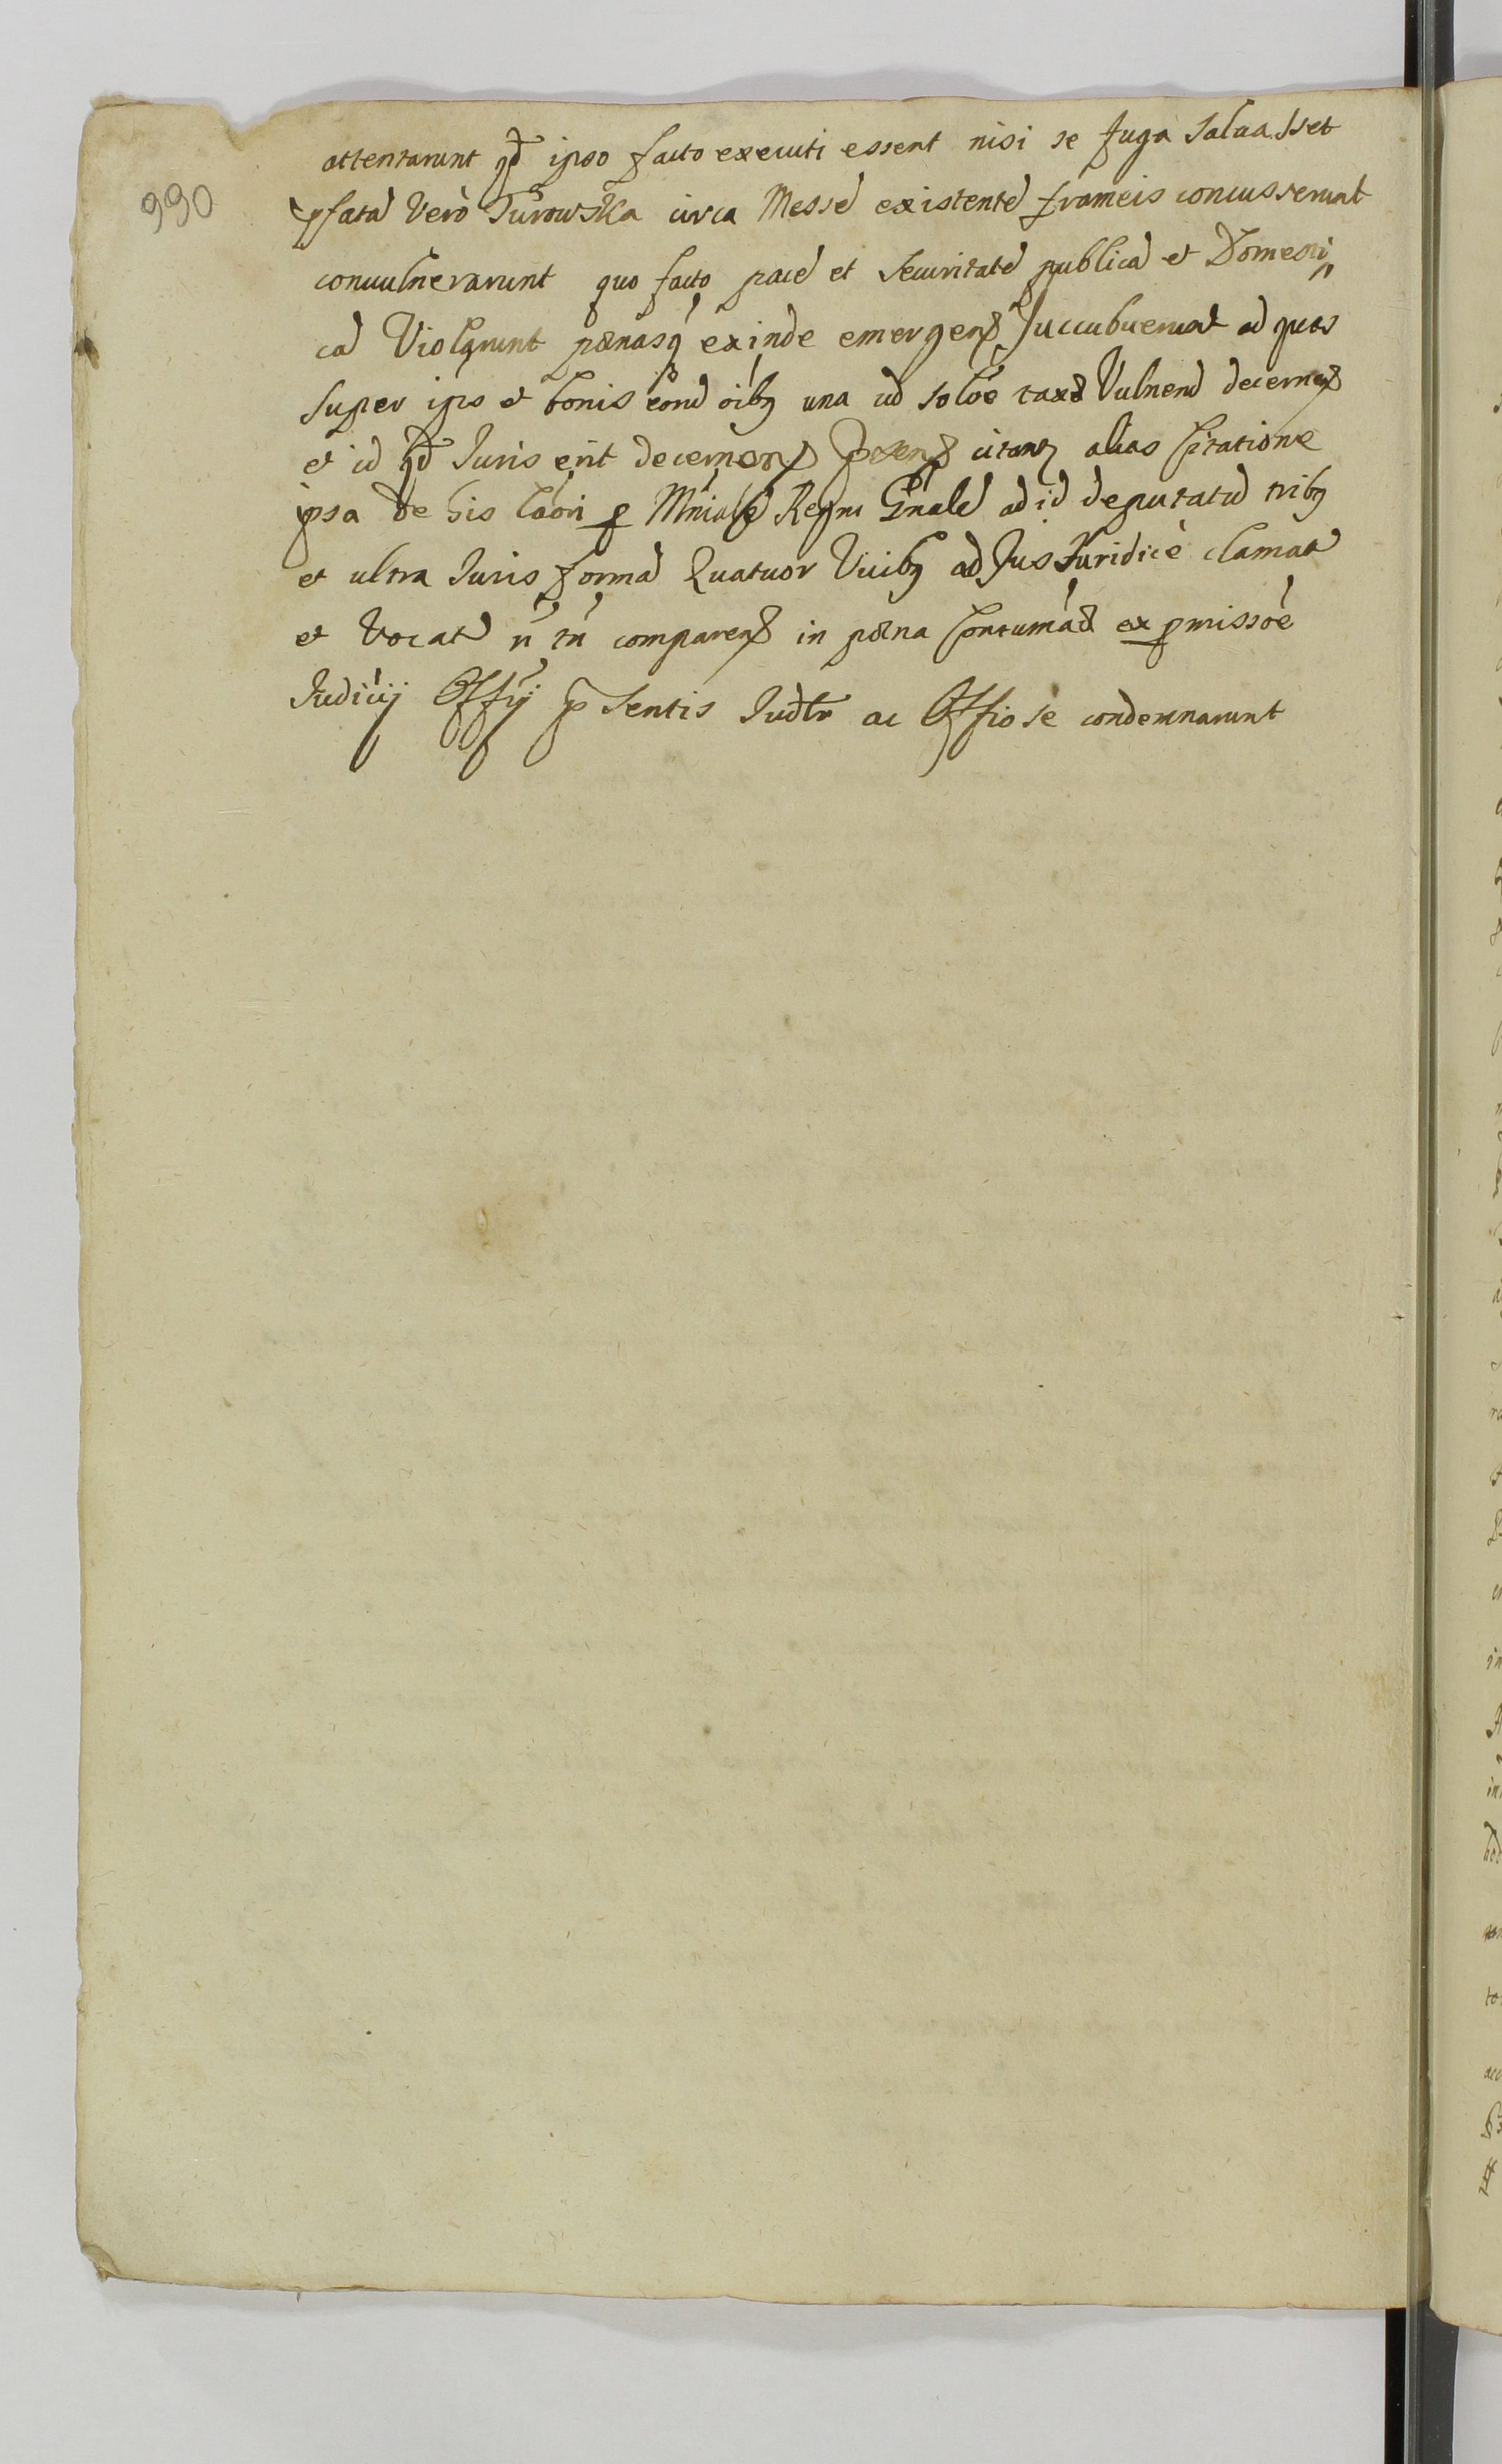 990
attentarunt qd ipso facto executi essent nisi se fuga saluasset
pfatā Vero Turowska circa Messē existentē frameis concusserunt
convulnerarunt quo facto pacē et securitatē publicā et Domesti„
cā Violarunt pœnasq exinde emergen Succubuerunt ad quas
super ipso et bonis eorū oibq una cū solõe taxæ Vulnerū decernen
et id qd Juris erit decernen citant alias Citatione
ipsa de his per Mnialē Regni Gnalē ad id deputatū tribq
et ultra Juris formā Quatuor Vicibq ad Jus Juridicè clamat
et Vocat n̄ tn̄ comparen in pœna Contumac ex pmissõe
Judicij Offij psentis Judtr ac Offiosè condemnarunt